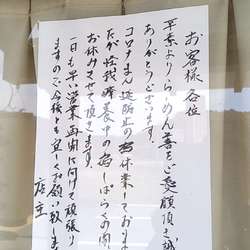 お客様各位
平素よりらーめん善をご愛顧頂き誠に
ありがとうございます。
コロナまん延防止の為休業しておりまし
たが怪我療養中の為しばらくの間
お休みさせて頂きます。
一日も早い営業再開に向けて頑張り
ますので今後とも宜しくお願い致しま
店主